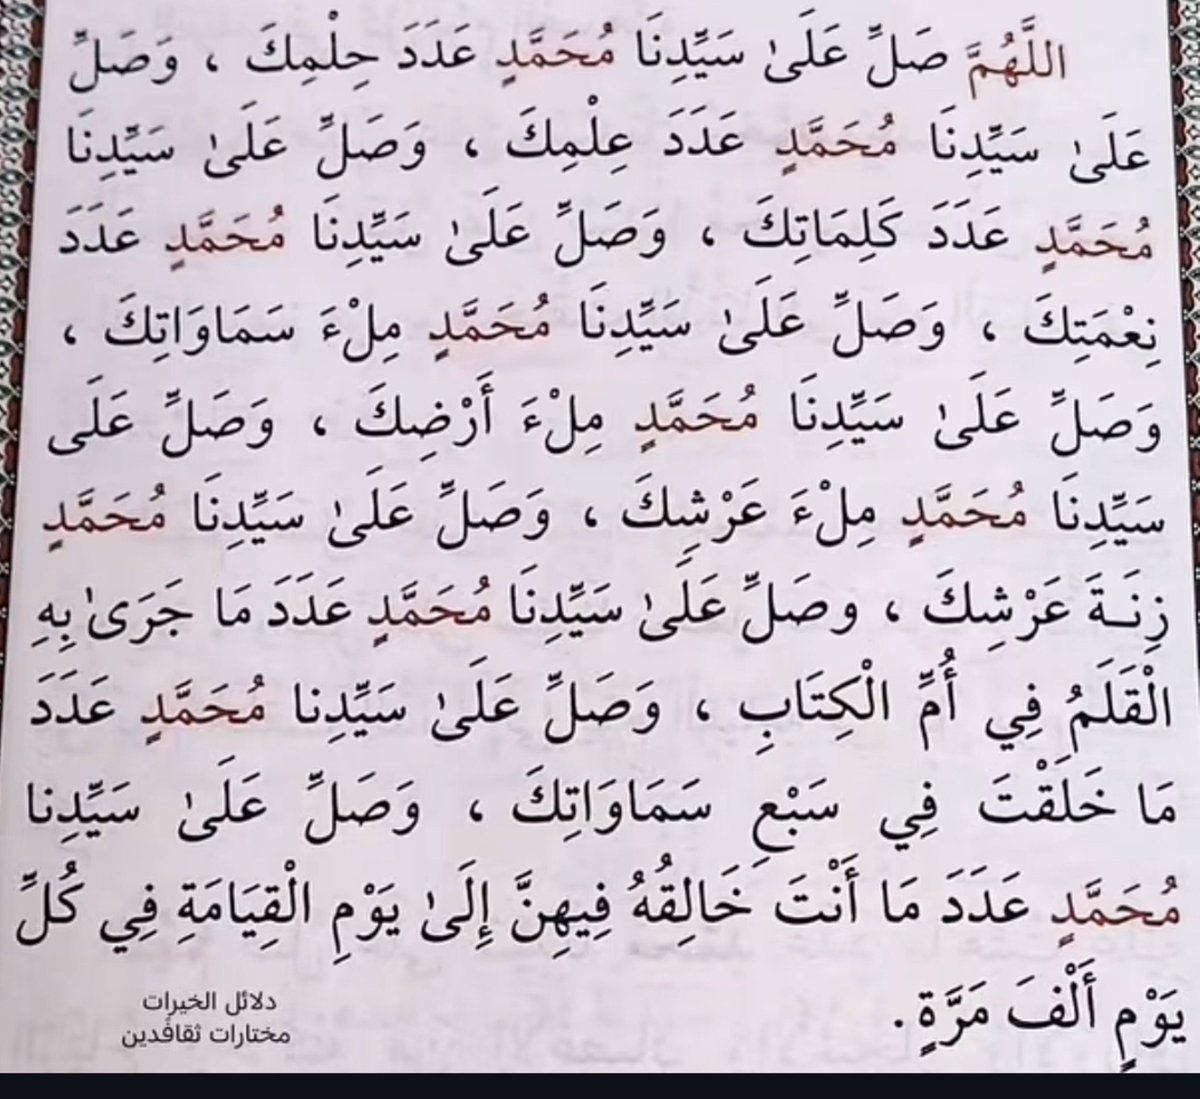 اللَّهُمَّ صَلِّ عَلَىٰ سَيِّدِنَا مُحَمَّدٍ عَدَدَ حِلْمِكَ ، وَصَلِّ
عَلَىٰ سَيِّدِنَا مُحَمَّدٍ عَدَدَ عِلْمِكَ ، وَصَلِّ عَلَىٰ سَيِّدِنَا
مُحَمَّدٍ عَدَدَ كَلِمَاتِكَ ، وَصَلِّ عَلَىٰ سَيِّدِنَا مُحَمَّدٍ عَدَدَ
نِعْمَتِكَ ، وَصَلِّ عَلَىٰ سَيِّدِنَا مُحَمَّدٍ مِلْءَ سَمَاوَاتِكَ ،
وَصَلِّ عَلَىٰ سَيِّدِنَا مُحَمَّدٍ مِلْءَ أَرْضِكَ ، وَصَلِّ عَلَى
سَيِّدِنَا مُحَمَّدٍ مِلْءَ عَرْشِكَ ، وَصَلِّ عَلَىٰ سَيِّدِنَا مُحَمَّدٍ
زِنَـةَ عَرْشِكَ ، وصَلِّ عَلَىٰ سَيِّدِنَا مُحَمَّدٍ عَدَدَ مَا جَرَىٰ بِهِ
الْقَلَمُ فِي أُمِّ الْكِتَابِ ، وَصَلِّ عَلَىٰ سَيِّدِنا مُحَمَّدٍ عَدَدَ
مَا خَلَقْتَ فِي سَبْعِ سَمَاوَاتِكَ ، وَصَلِّ عَلَىٰ سَيِّدِنا
مُحَمَّدٍ عَدَدَ مَا أَنْتَ خَالِقُهُ فِيهِنَّ إِلَىٰ يَوْمِ الْقِيَامَةِ فِي كُلِّ
يَوْمٍ أَلْفَ مَرَّةٍ .
دلائل الخيرات
مختارات ثقافدين